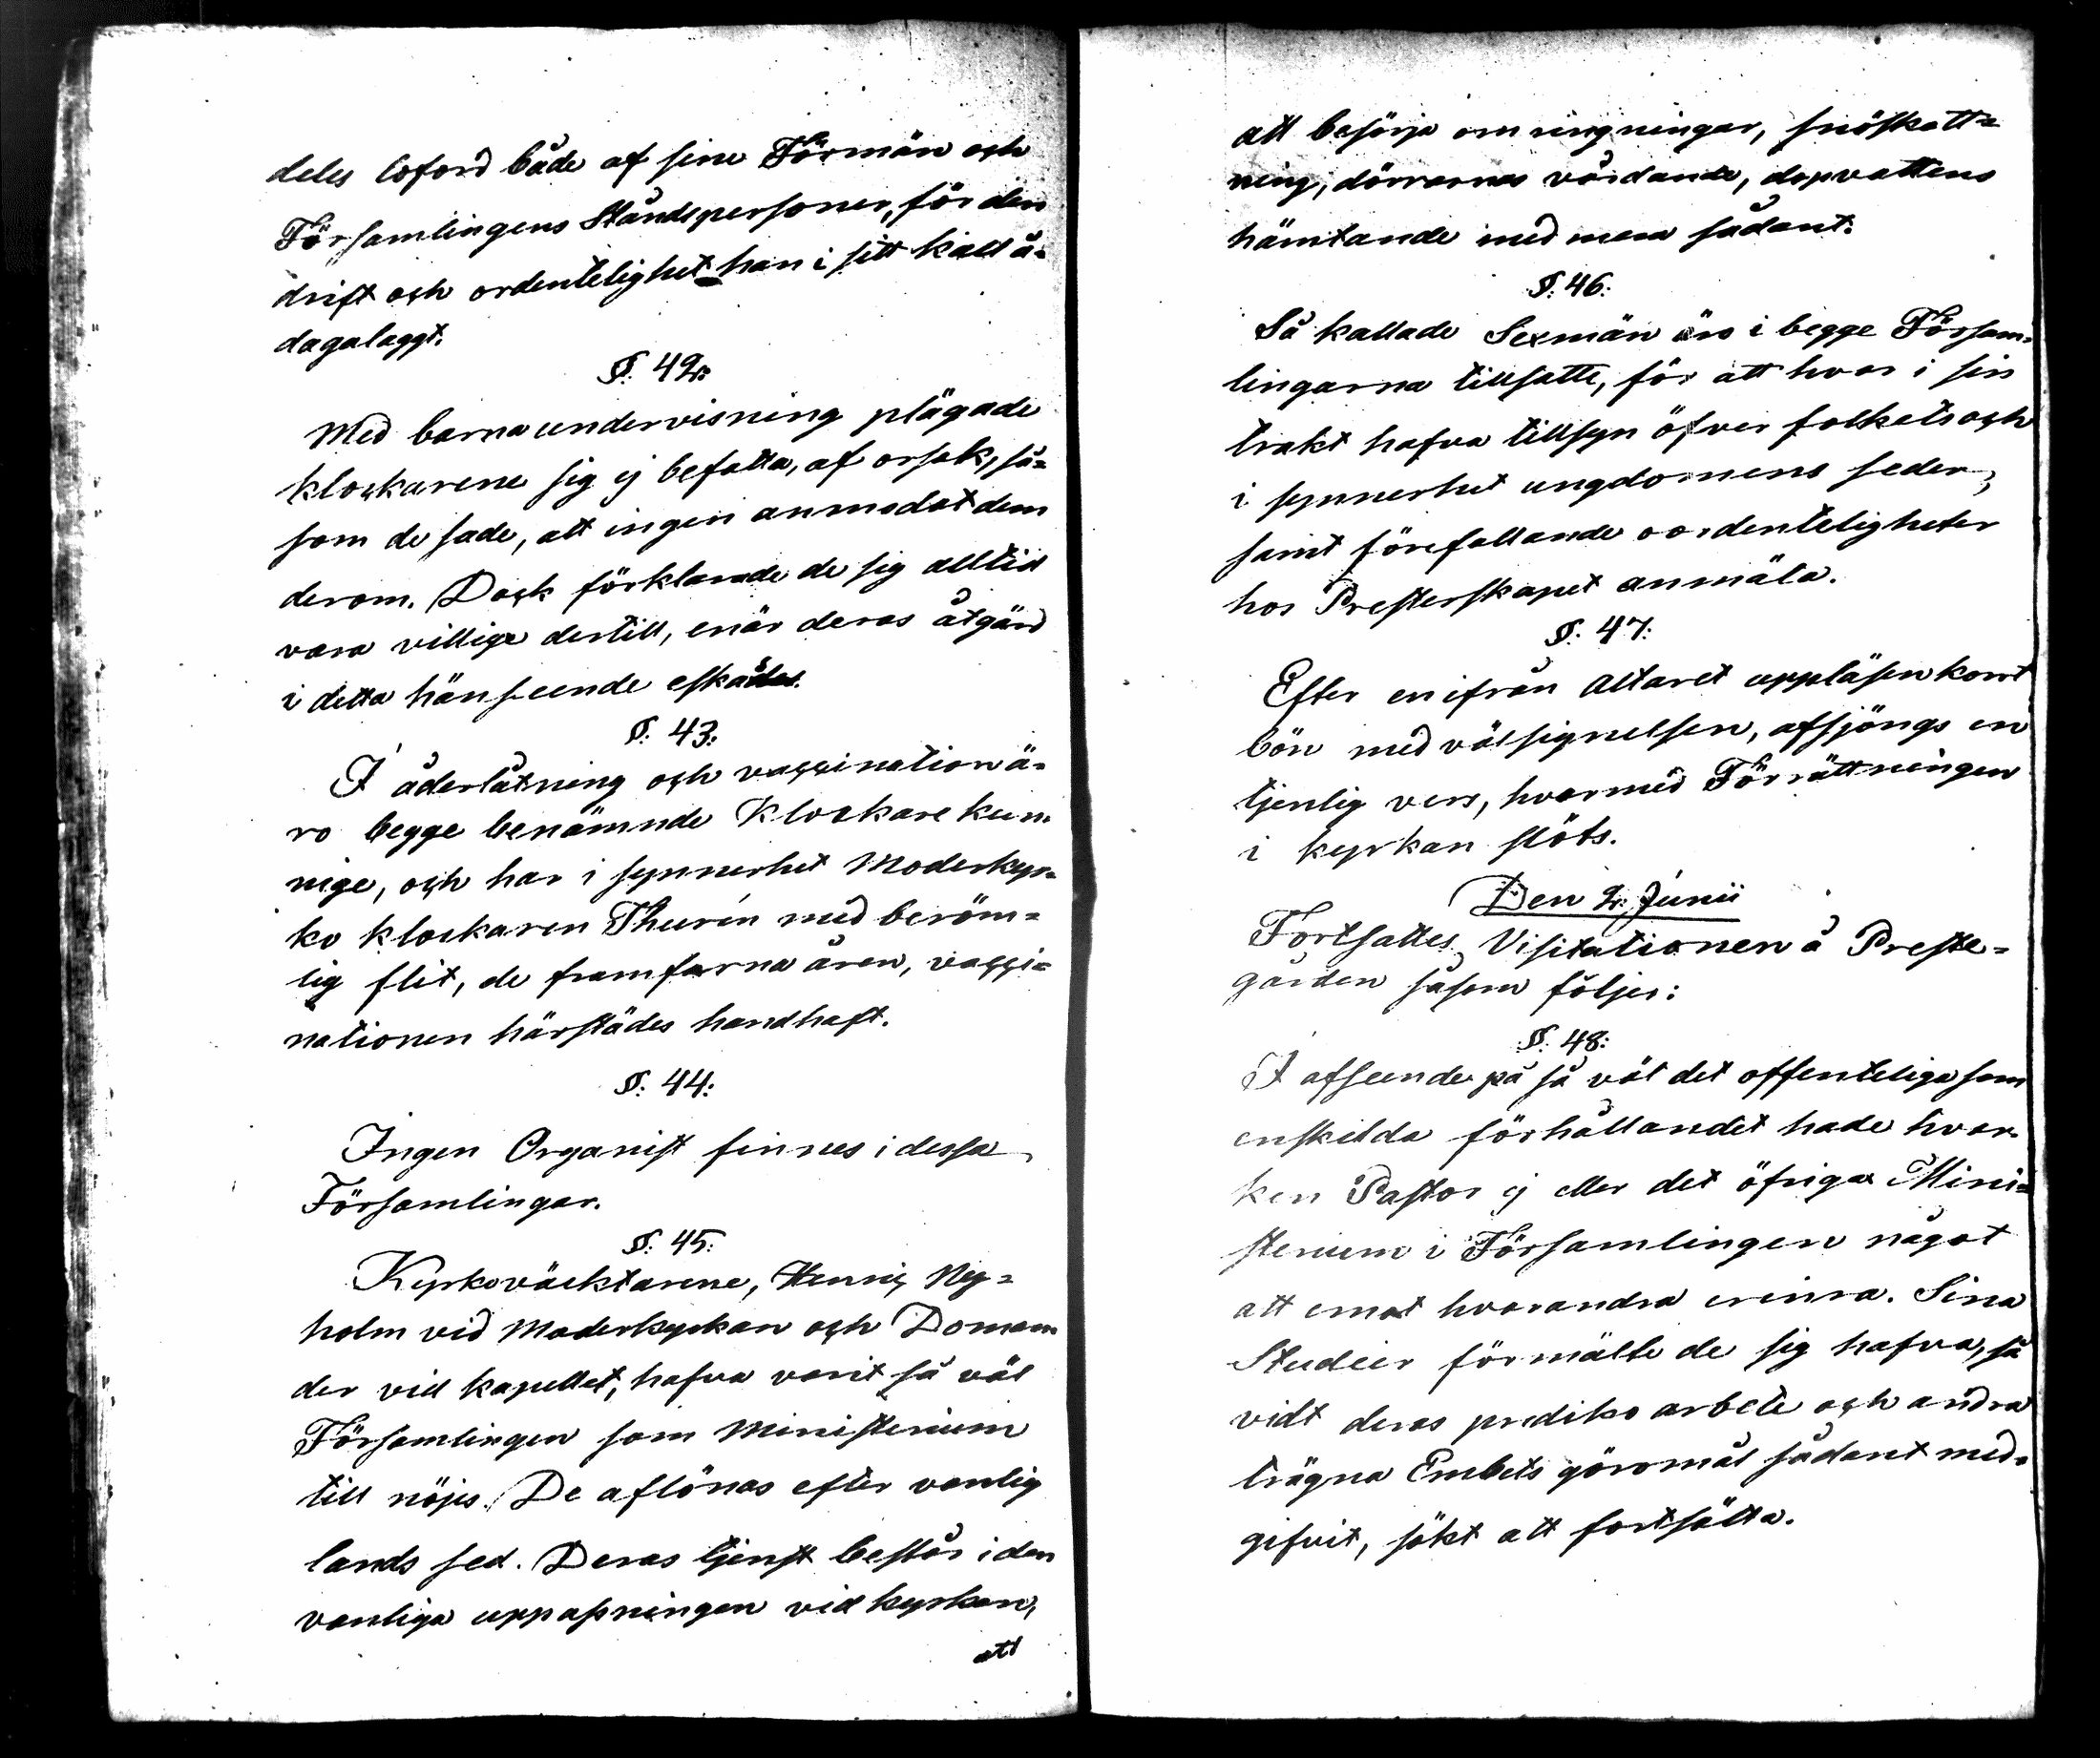 deles loford både af sine Förmän och
Församlingens Ståndspersoner, för den
drift och ordentelighet han i sitt kall å-
dagalaggt.
§: 42:
Med barnaundervisning plägade
klockarene sig ej befatta, af orsak, så=
som de sade, att ingen anmodat dem
derom. Dock förklarade de sig alltid
vara villige dertill, enär deras åtgärd
i detta hänseende eskades.
§: 43:
I åderlåtning och vaccination ä-
ro begge benämnde Klockare kun-
nige, och har i synnerhet Moderkyr=
ko klockaren Thurén med beröm=
lig flit, de framfarna åren, vacci=
nationen härstädes handhaft.
§: 44:
Ingen Organist finnes i dessa
Församlingar.
§: 45:
Kyrkoväcktarene, Henric Ny=
holm vid Moderkyrkan och Doman
der vid kapellet, hafva varit så väl
Församlingen som Ministerium
till nöjes. De aflönas efter vanlig
lands sed. Deras tjenst består i den
vanliga uppassningen vid kyrkan,
att
att besörja om ringningar, snöskott=
ning, dörrarnes vårdande, dopvattens
hämtande med mera sådant.
§: 46:
Så kallade Sexmän äro i begge Försam=
lingarna tillsatte, för att hvar i sin
trakt hafva tillsyn öfver folkets och
i synnerhet ungdomens seder,
samt förefallande oordenteligheter
hos Presterskapet anmäla.
§: 47:
Efter en ifrån Altaret uppläsen kort
bön med välsignelsen, afsjöngs en
tjenlig vers, hvarmed Förrättningen
i kyrkan slöts.
Den 2. Junii
Fortsattes Visitationen å Preste=
gården såsom följer:
§: 48:
I afseende på så väl det offenteliga som
enskilda förhållandet hade hvar-
ken Pastor ej eller det öfriga Mini=
sterium i Församlingen något
att emot hvarandra erinra. Sina
Studier förmälte de sig hafva, så
vidt deras prediko arbete och andra
trägna Embets göromål sådant med=
gifvit, sökt att fortsätta.